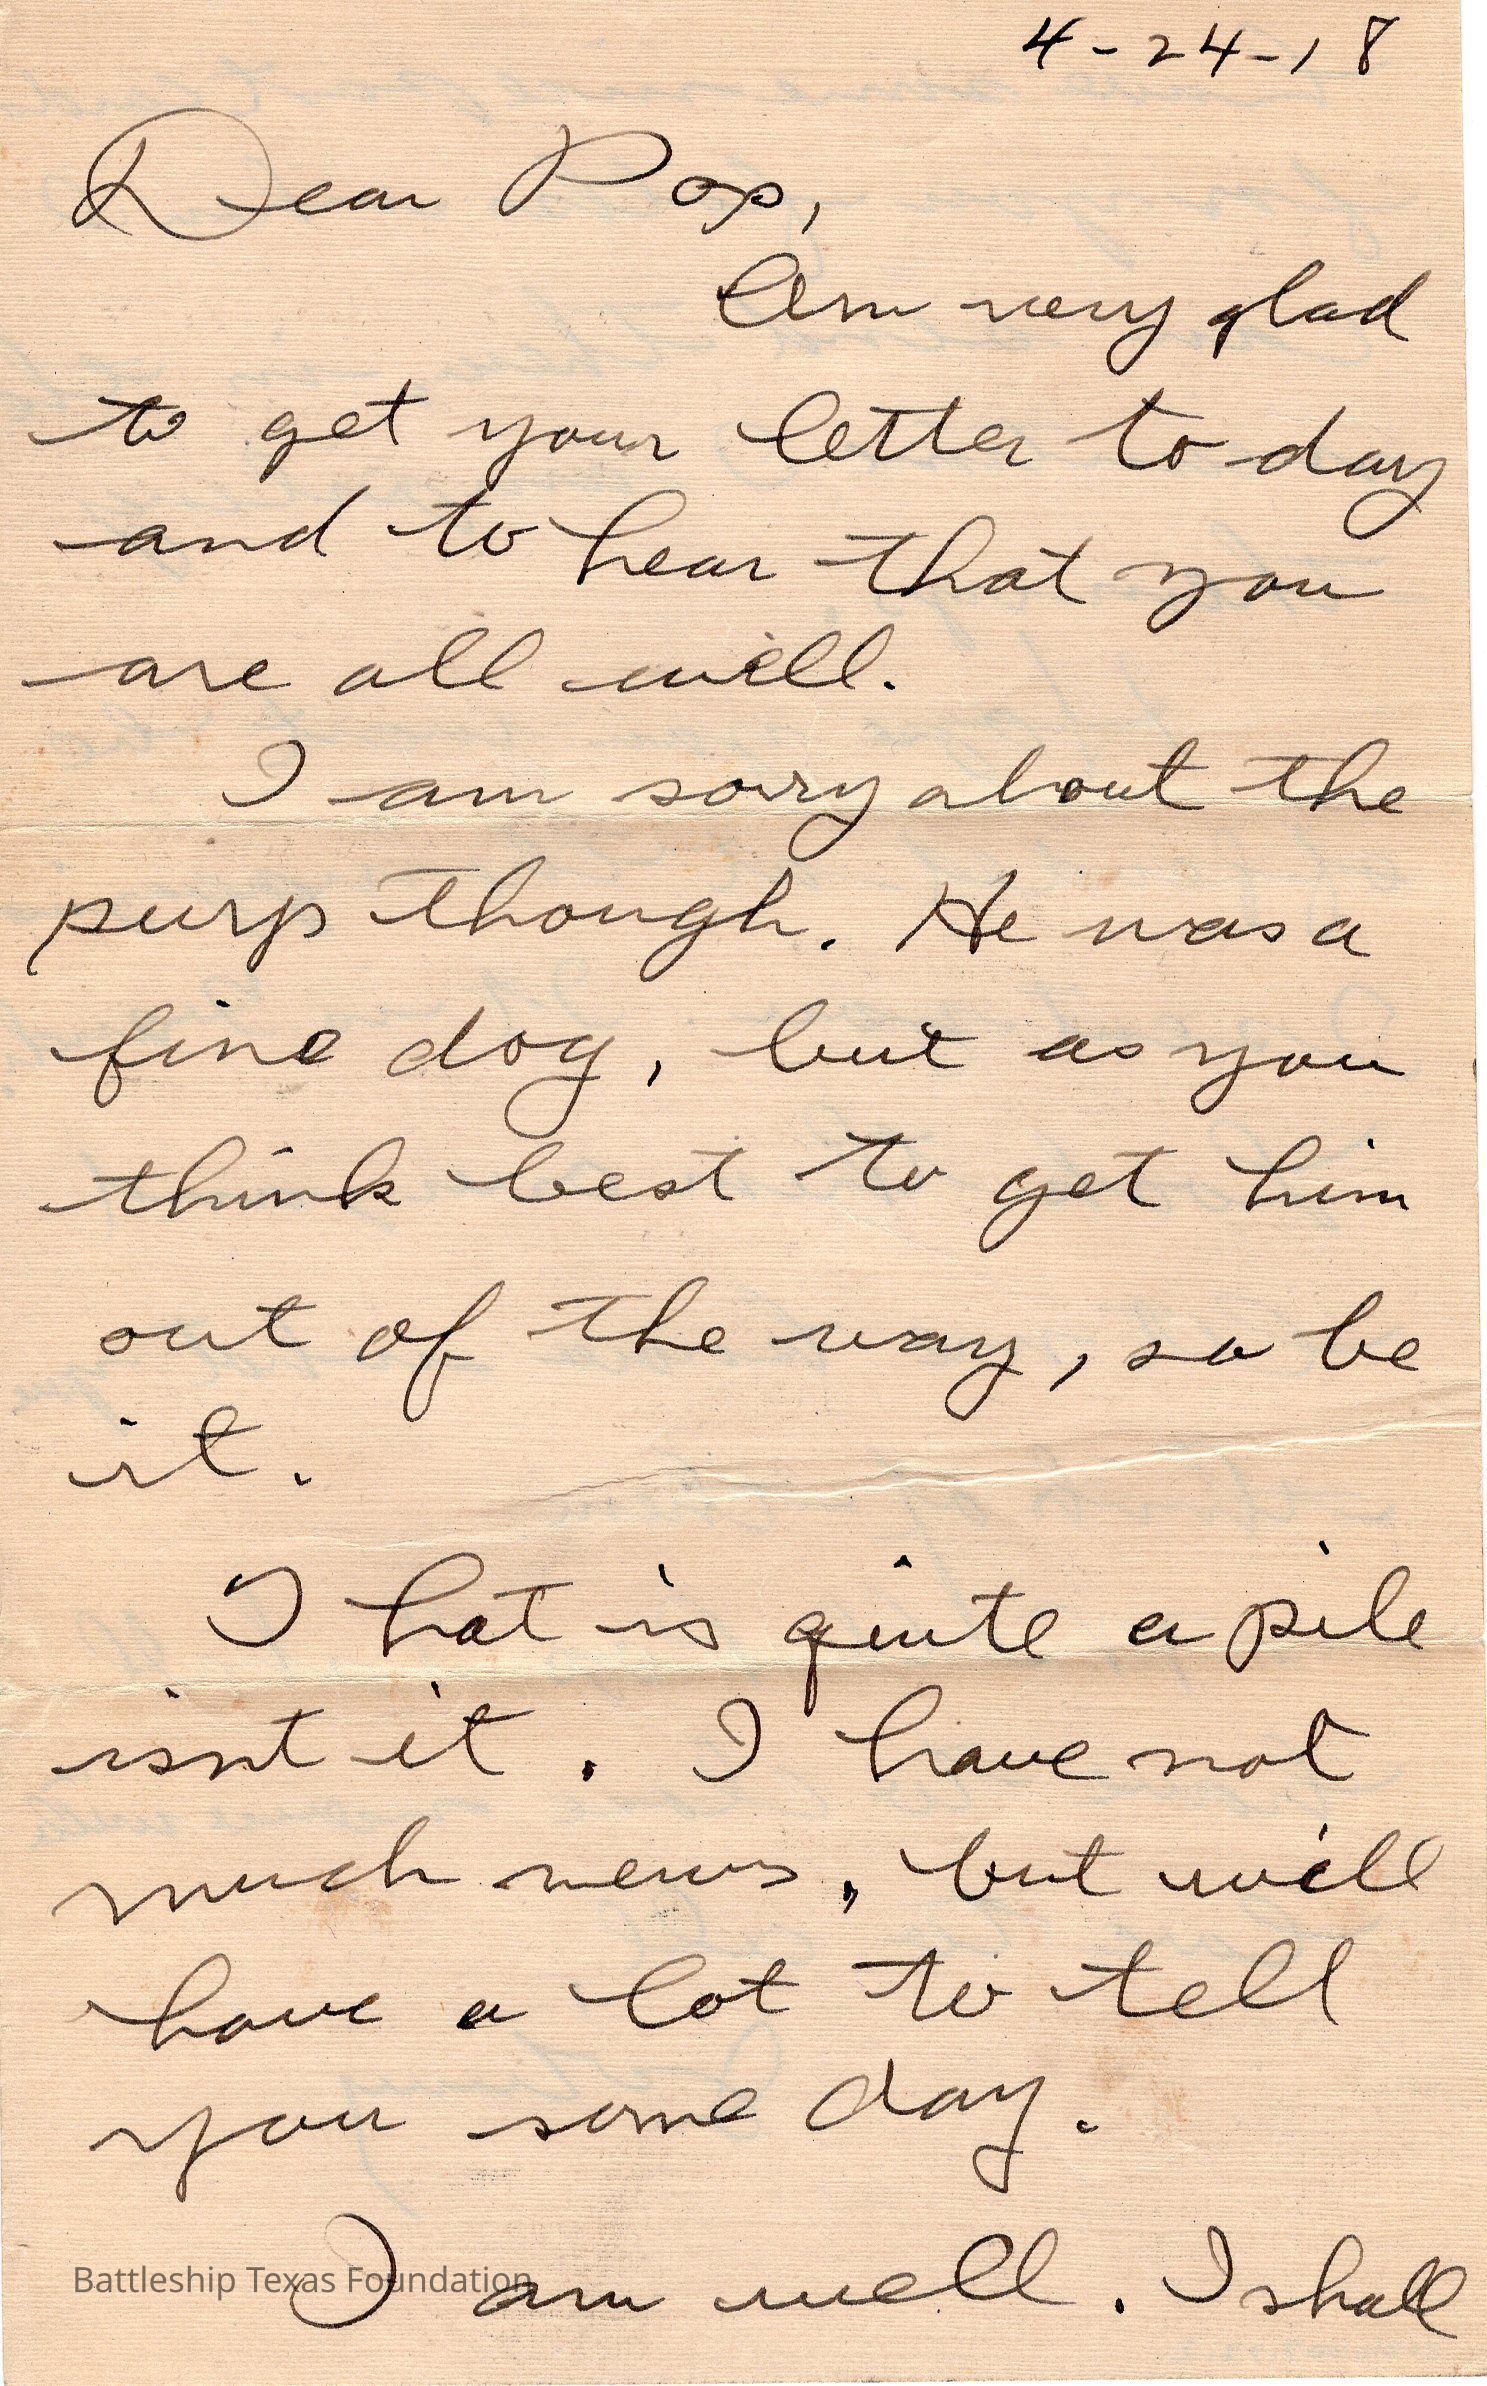 4-24-18
Dear Pop,
Am very glad
to get your letter to day
and to hear that you
are all well.
I am sorry about the
purp though. He was a
fine dog, but as you
think best to get him
out of the way, so be
it.
That is quite a pile
isnt it. I have not
much news, but will
have a lot to tell
you some day.
I am well. I shall
Battleship Texas Foundation